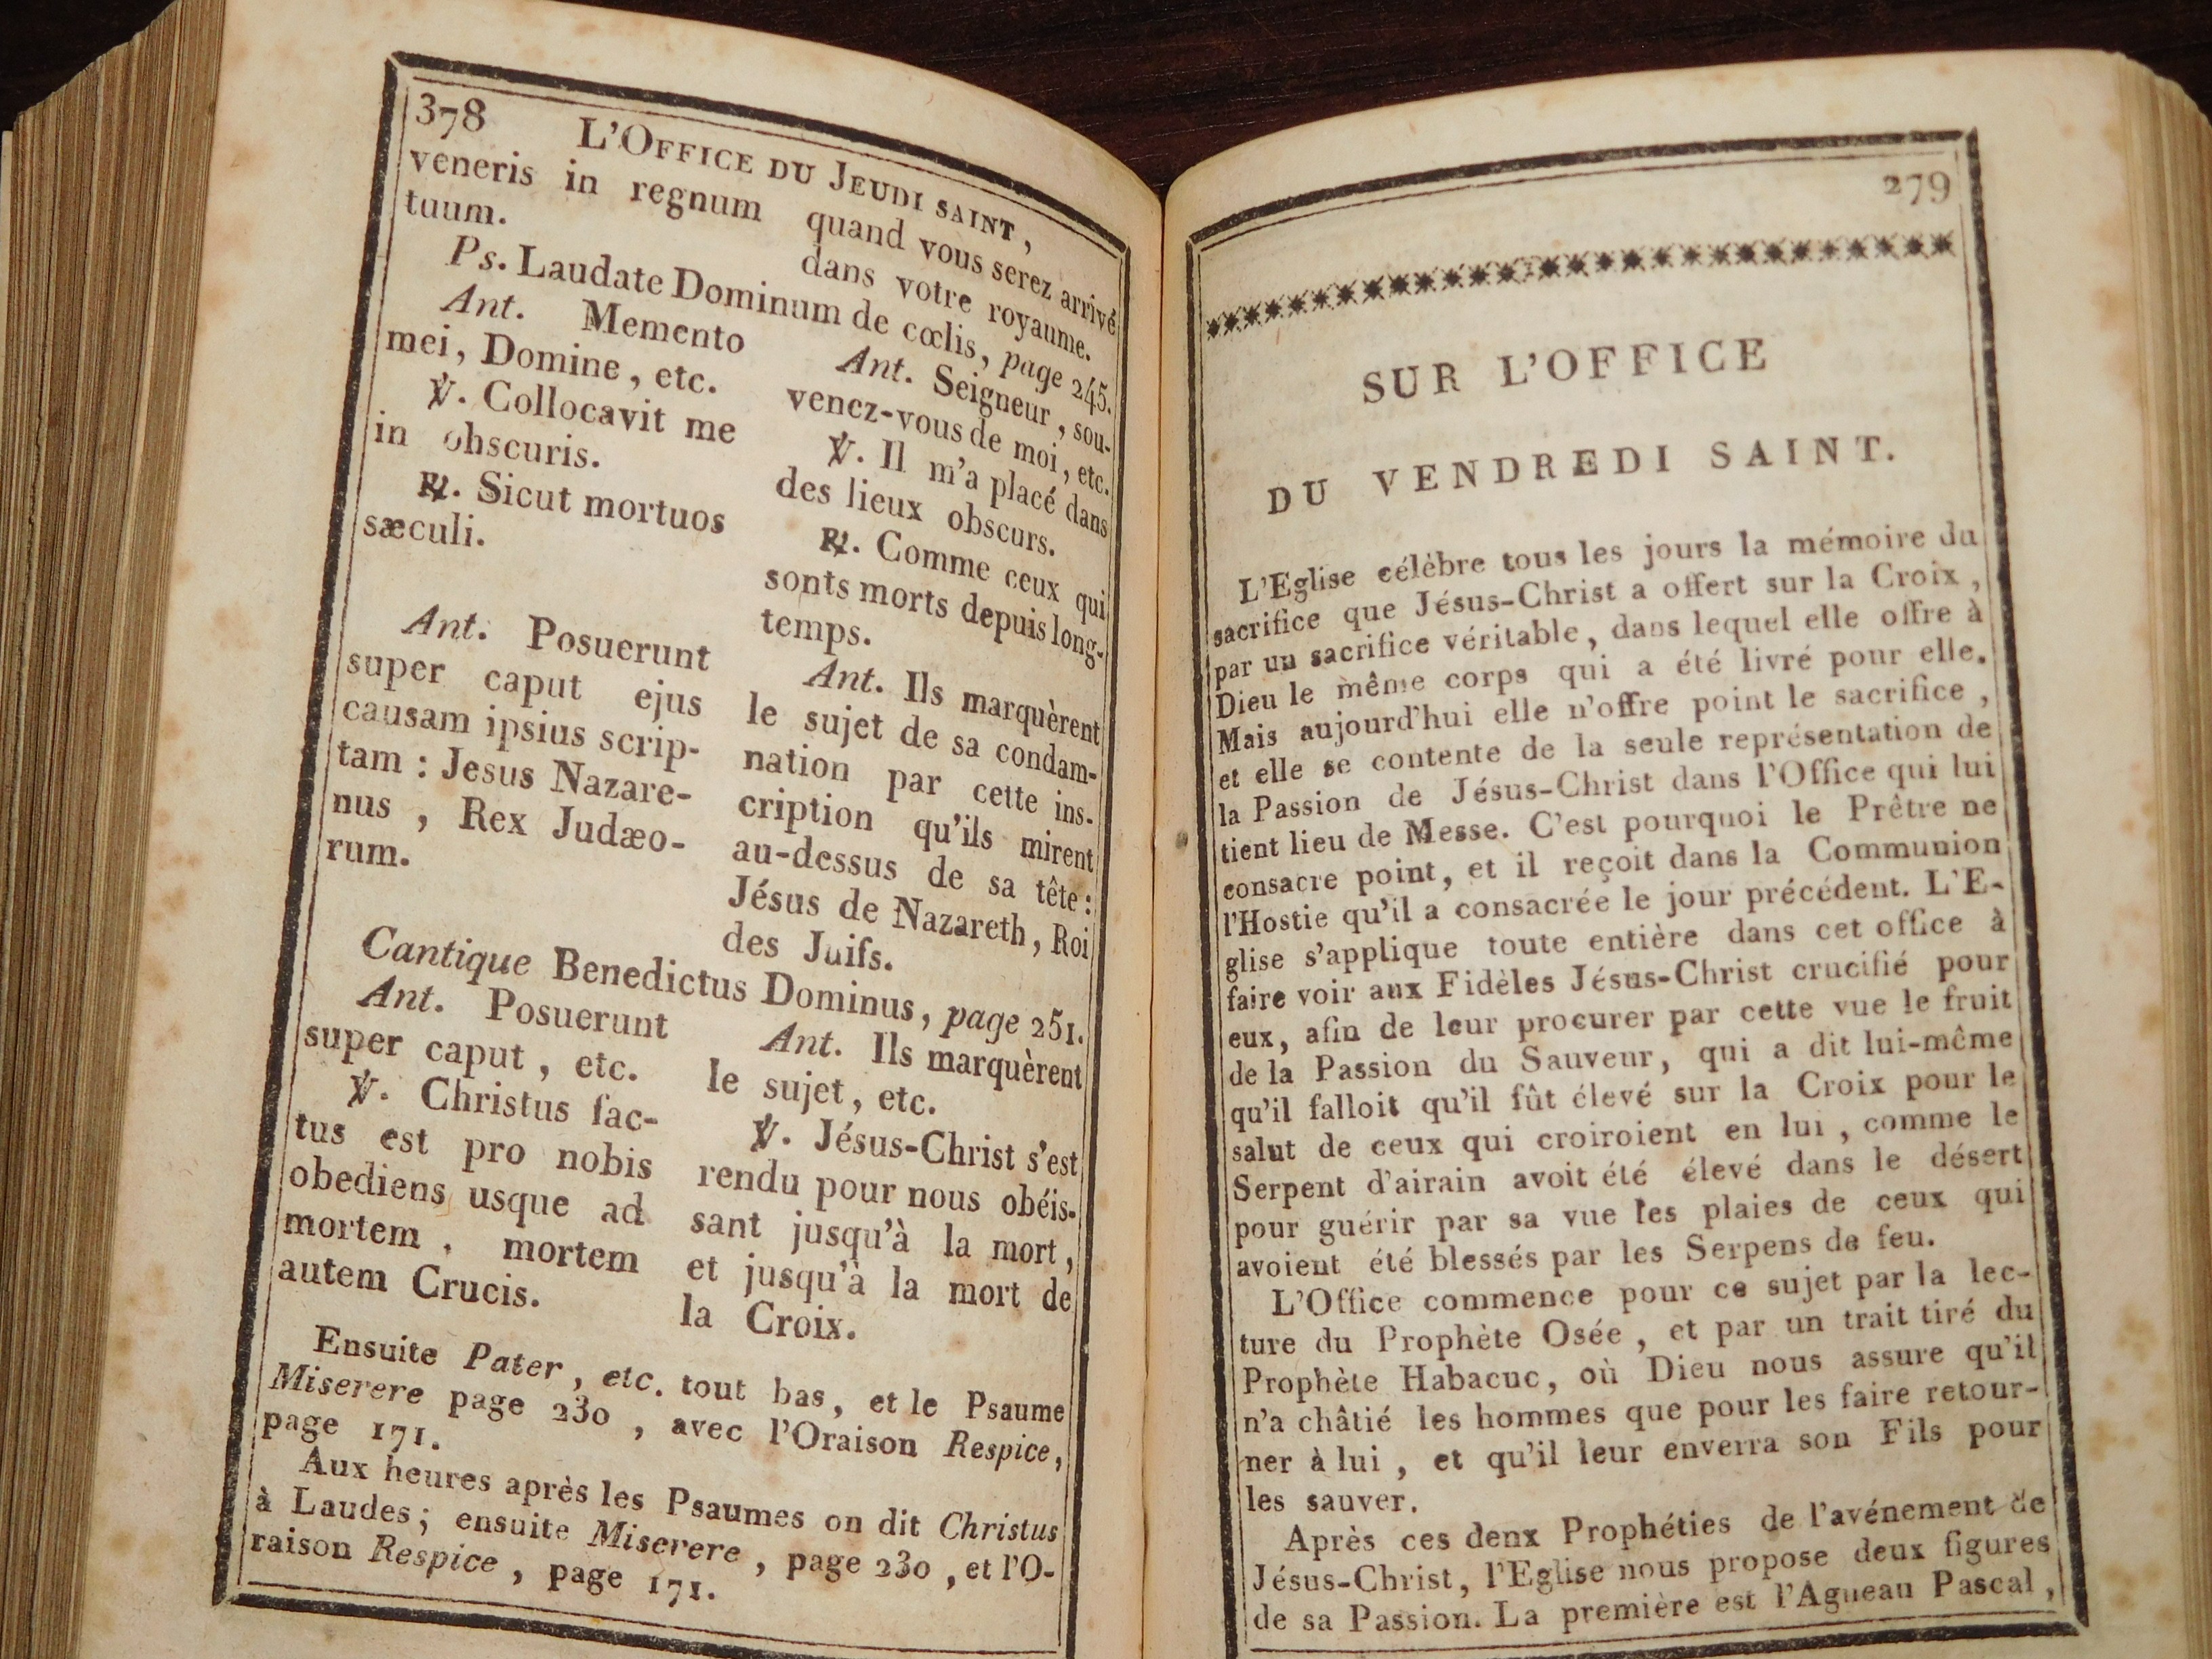 378 L'OFFICE DU JEUDI SAINT,
veneris in regnum
tuum.
quand vous serez arrivé
dans votre royaume.
Ps. Laudate Dominum de cœlis, page 245.
Ant. Memento
mei, Domine, etc.
℣. Collocavit me
in obscuris.
℟. Sicut mortuos
sæculi.
Ant. Posuerunt
super caput ejus
causam ipsius scrip-
tam : Jesus Nazare-
nus , Rex Judæo-
rum.
Ant. Seigneur, sou-
venez-vous de moi, etc.
℣. Il m'a placé dans
des lieux obscurs.
℟. Comme ceux qui
sonts morts depuis long-
temps.
Ant. Ils marquèrent
le sujet de sa condam-
nation par cette ins-
cription qu'ils mirent
au-dessus de sa tête :
Jésus de Nazareth, Roi
des Juifs.
Cantique Benedictus Dominus, page 251.
Ant. Posuerunt
super caput, etc.
℣. Christus fac-
tus est pro nobis
obediens usque ad
mortem , mortem
autem Crucis.
Ant. Ils marquèrent
le sujet, etc.
℣. Jésus-Christ s'est
rendu pour nous obéis-
sant jusqu'à la mort,
et jusqu'à la mort de
la Croix.
Ensuite Pater, etc. tout bas, et le Psaume
Miserere page 230 , avec l'Oraison Respice,
page 171.
Aux heures après les Psaumes on dit Christus
à Laudes; ensuite Miserere, page 230, et l'O-
raison Respice, page 171.
279
SUR L'OFFICE
DU VENDREDI SAINT.
L'Eglise célèbre tous les jours la mémoire du
sacrifice que Jésus-Christ a offert sur la Croix,
par un sacrifice véritable, dans lequel elle offre à
Dieu le même corps qui a été livré pour elle.
Mais aujourd'hui elle n'offre point le sacrifice,
et elle se contente de la seule représentation de
la Passion de Jésus-Christ dans l'Office qui lui
tient lieu de Messe. C'est pourquoi le Prêtre ne
consacre point, et il reçoit dans la Communion
l'Hostie qu'il a consacrée le jour précédent. L'E-
glise s'applique toute entière dans cet office à
faire voir aux Fidèles Jésus-Christ crucifié pour
eux, afin de leur procurer par cette vue le fruit
de la Passion du Sauveur, qui a dit lui-même
qu'il falloit qu'il fût élevé sur la Croix pour le
salut de ceux qui croiroient en lui, comme le
Serpent d'airain avoit été élevé dans le désert
pour guérir par sa vue les plaies de ceux qui
avoient été blessés par les Serpens de feu.
L'Office commence pour ce sujet par la lec-
ture du Prophète Osée, et par un trait tiré du
Prophète Habacuc, où Dieu nous assure qu'il
n'a châtié les hommes que pour les faire retour-
ner à lui, et qu'il leur enverra son Fils pour
les sauver.
Après ces denx Prophéties de l'avénement de
Jésus-Christ, l'Eglise nous propose deux figures
de sa Passion. La première est l'Agneau Pascal,